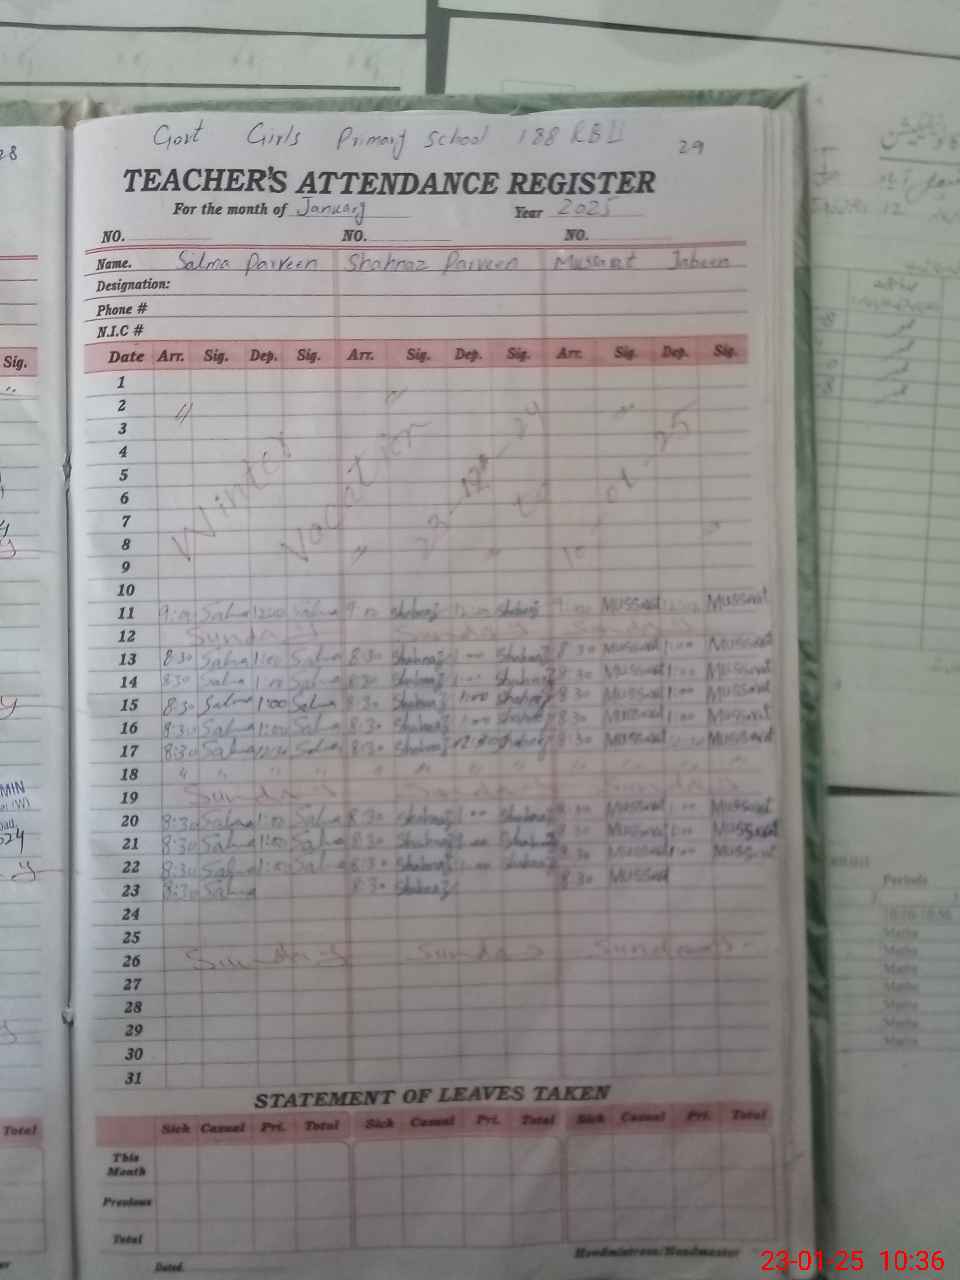 Govt Girls Primary School 188 RB II
29
TEACHER'S ATTENDANCE REGISTER
For the month of January Year 2025
NO. NO. NO.
Name. Salma Parveen Shahnaz Parveen Mussarat Jabeen
Designation:
Phone #
N.I.C #
Date Arr. Sig. Dep. Sig. Arr. Sig. Dep. Sig. Arr. Sig. Dep. Sig.
1
2 " " "
3
4
5
6
7
8
9
Winter Vacation
10
11 9:00 Salma 12:00 Salma 9:00 Shahnaz 12:00 Shahnaz 9:00 Mussarat Mussarat
12 Sunday Sunday Sunday
13 8:30 Salma 1:00 Salma 8:30 Shahnaz 1:00 Shahnaz 8:30 Mussarat 1:00 Mussarat
14 8:30 Salma 1:00 Salma 8:30 Shahnaz 1:00 Shahnaz 8:30 Mussarat 1:00 Mussarat
15 8:30 Salma 1:00 Salma 8:30 Shahnaz 1:00 Shahnaz 8:30 Mussarat 1:00 Mussarat
16 8:30 Salma 1:00 Salma 8:30 Shahnaz 1:00 Shahnaz 8:30 Mussarat 1:00 Mussarat
17 8:30 Salma Salma 8:30 Shahnaz 12:30 Shahnaz 8:30 Mussarat Mussarat
18 " " " " " " " " " " "
19 Sunday Sunday Sunday
20 8:30 Salma 1:00 Salma 8:30 Shahnaz 1:00 Shahnaz 8:30 Mussarat 1:00 Mussarat
21 8:30 Salma 1:00 Salma 8:30 Shahnaz 1:00 Shahnaz 8:30 Mussarat 1:00 Mussarat
22 8:30 Salma 1:00 Salma 8:30 Shahnaz 1:00 Shahnaz 8:30 Mussarat 1:00 Mussarat
23 8:30 Salma 8:30 Shahnaz 8:30 Mussarat
24
25
26 Sunday Sunday Sunday
27
28
29
30
31
STATEMENT OF LEAVES TAKEN
Sick Casual Pri. Total Sick Casual Pri. Total Sick Casual Pri. Total
This Month
Previous
Total
Dated. Headmistress/Headmaster
28
Sig.
MIN
Total
Periods
Maths
Maths
Maths
Maths
Maths
Maths
Maths
23-01-25 10:36